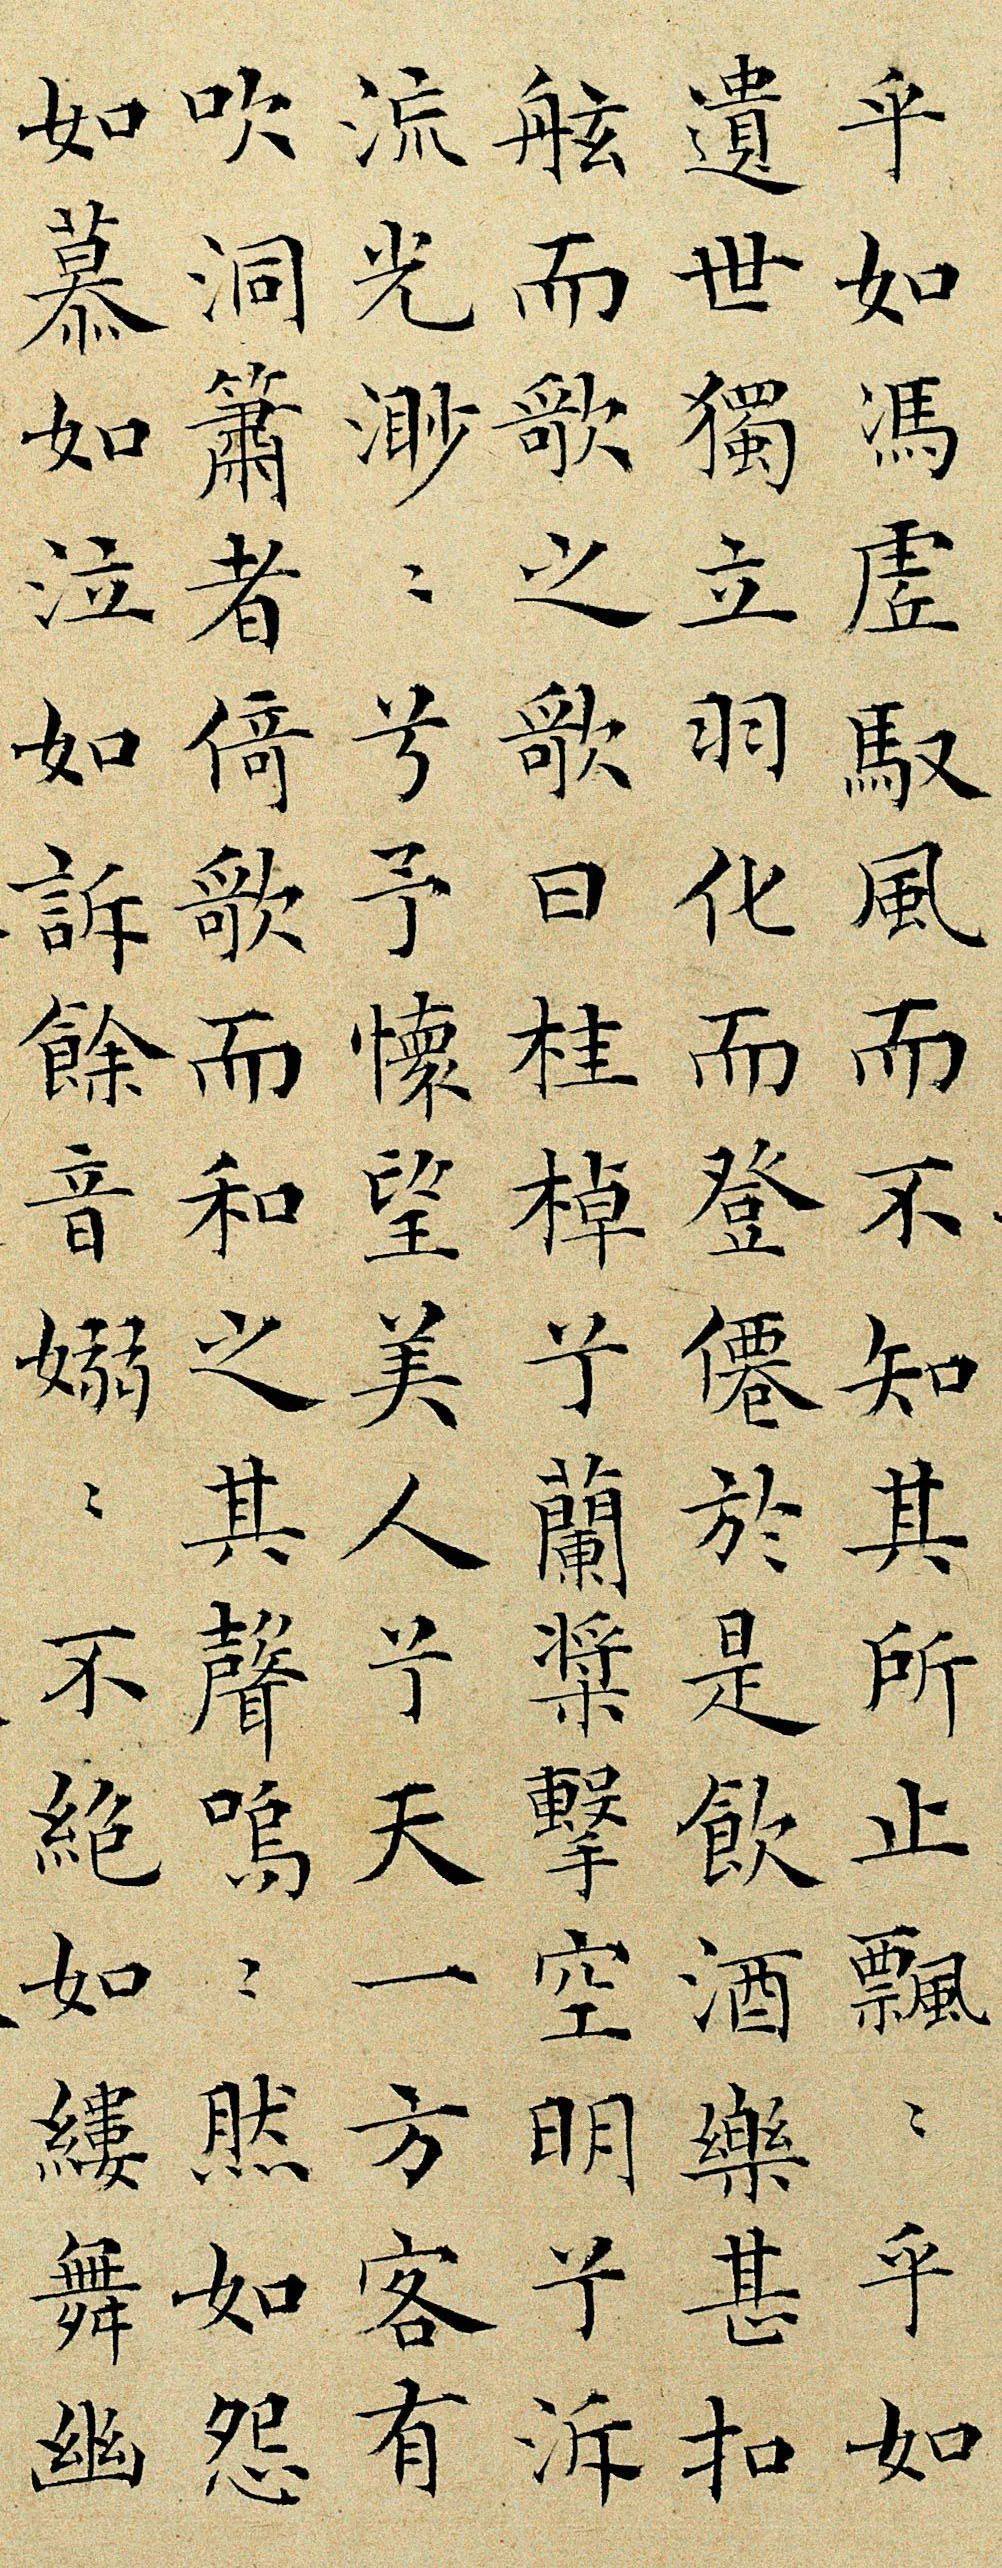 乎如馮虗風馭風而不知其所止飄〻乎如
遺世獨立羽化而登僊於是飲酒樂甚扣
舷而歌之歌曰桂棹兮蘭槳擊空明兮泝
流光渺〻兮予懷望美人兮天一方客有
吹洞簫者倚歌而和之其聲嗚〻然如怨
如慕如泣如訴餘音嫋〻不絕如縷舞幽